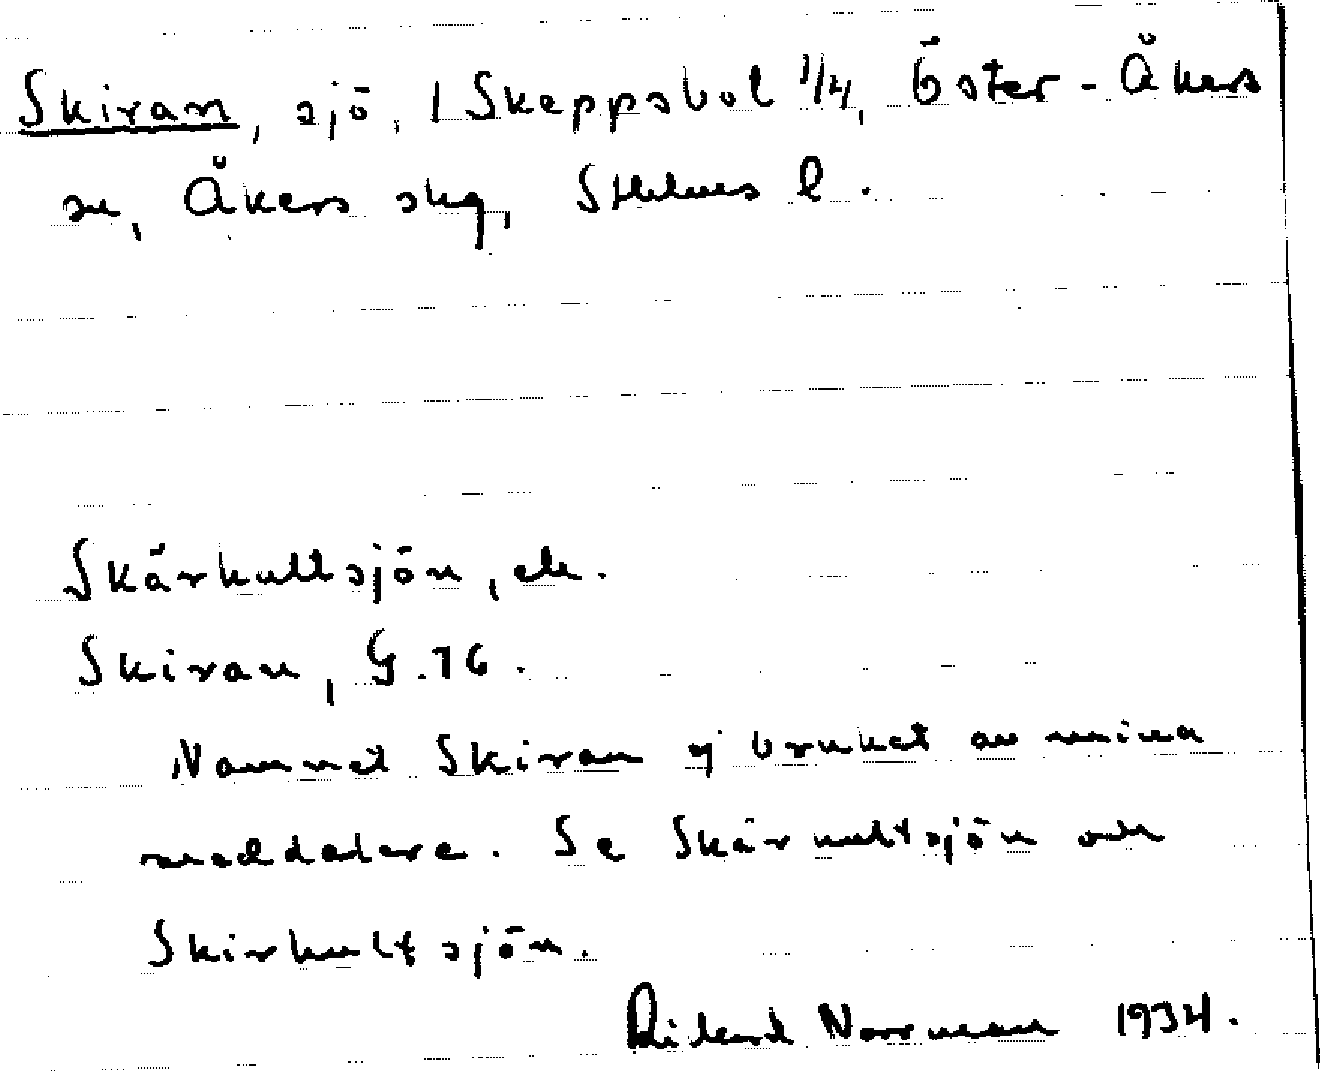 Skiran, sjö, 1 Skeppsbol 1/4, Öster-Åkers
sn, Åkers skg, Sthlms l.
Skärhultsjön, ek.
Skiran, G.76.
Namnet Skiran ej brukat av mina
meddelare. Se Skärhultsjön och
Skirhultsjön.
Rikard Norrman 1934.